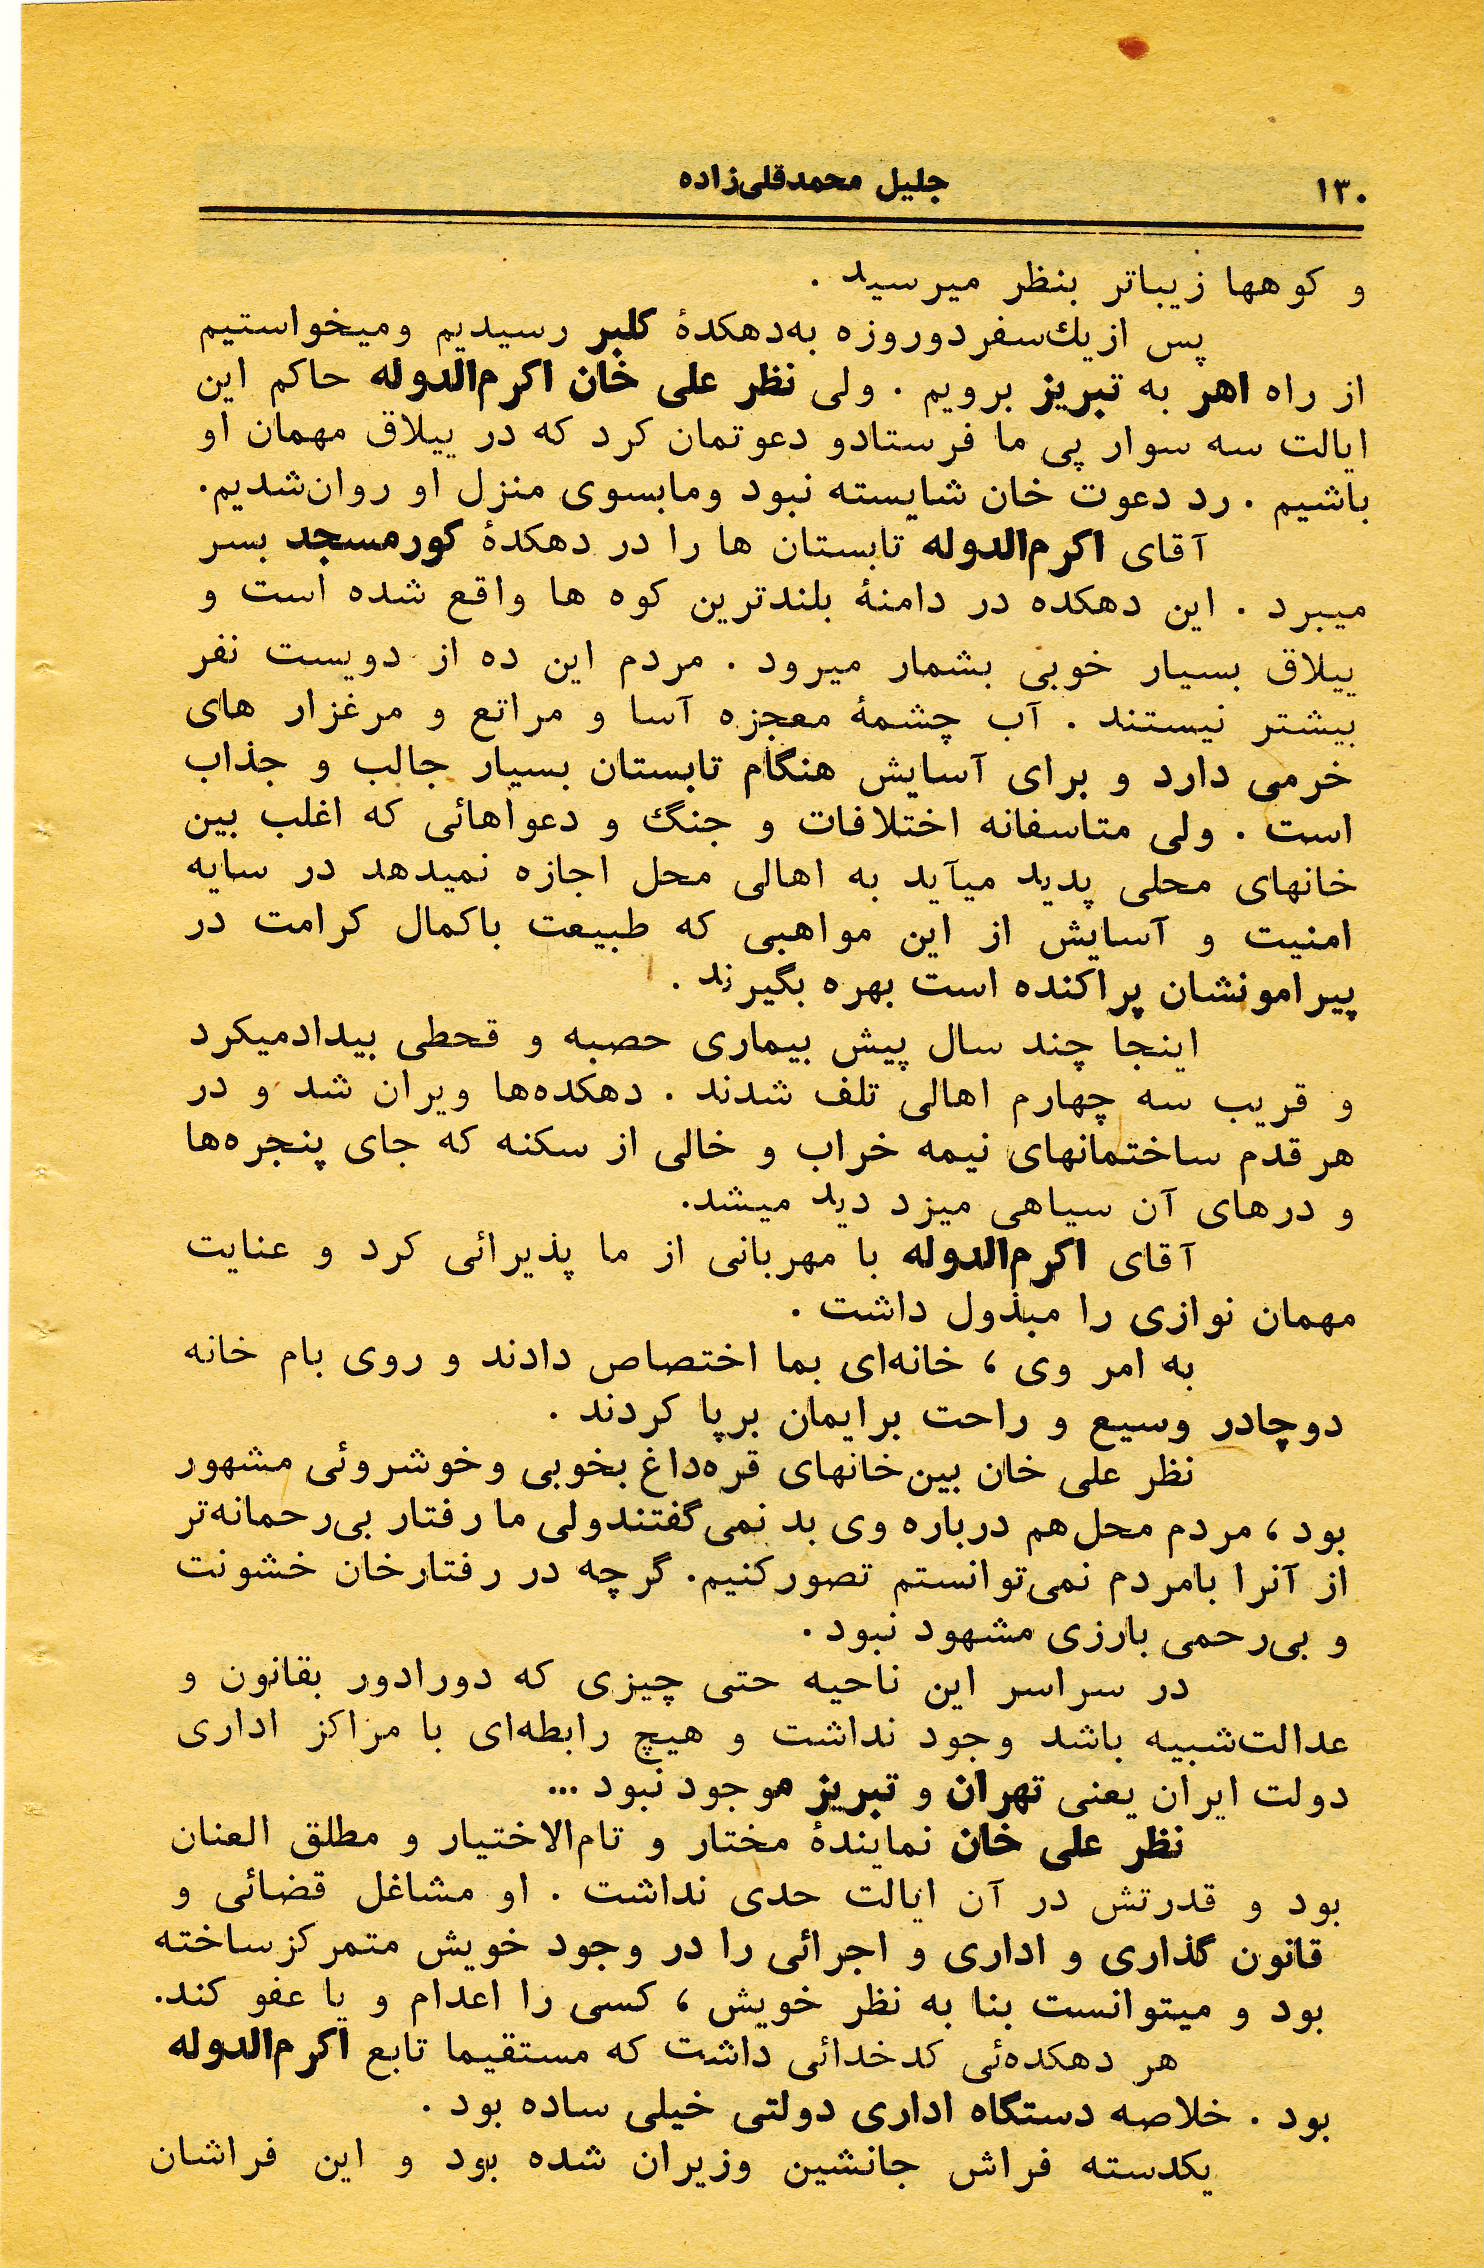 ۱۳۰
جلیل محمدقلی‌زاده
و کوهها زیباتر بنظر میرسید .
پس ازیك‌سفر دوروزه به‌دهکدهٔ کلبر رسیدیم ومیخواستیم
از راه اهر به تبریز برویم . ولی نظر علی خان اکرم‌الدوله حاکم این
ایالت سه سوار پی ما فرستادو دعوتمان کرد که در ییلاق مهمان او
باشیم . رد دعوت خان شایسته نبود ومابسوی منزل او روان‌شدیم.
آقای اکرم‌الدوله تابستان ها را در دهکدهٔ کورمسجد بسر
میبرد . این دهکده در دامنهٔ بلندترین کوه ها واقع شده است و
ییلاق بسیار خوبی بشمار میرود . مردم این ده از دویست نفر
بیشتر نیستند . آب چشمهٔ معجزه آسا و مراتع و مرغزار های
خرمی دارد و برای آسایش هنگام تابستان بسیار جالب و جذاب
است . ولی متاسفانه اختلافات و جنگ و دعواهائی که اغلب بین
خانهای محلی پدید میآید به اهالی محل اجازه نمیدهد در سایه
امنیت و آسایش از این مواهبی که طبیعت باکمال کرامت در
پیرامونشان پراکنده است بهره بگیرند .
اینجا چند سال پیش بیماری حصبه و قحطی بیدادمیکرد
و قریب سه چهارم اهالی تلف شدند . دهکده‌ها ویران شد و در
هرقدم ساختمانهای نیمه خراب و خالی از سکنه که جای پنجره‌ها
و درهای آن سیاهی میزد دید میشد.
آقای اکرم‌الدوله با مهربانی از ما پذیرائی کرد و عنایت
مهمان نوازی را مبذول داشت .
به امر وی ، خانه‌ای بما اختصاص دادند و روی بام خانه
دوچادر وسیع و راحت برایمان برپا کردند .
نظر علی خان بین‌خانهای قره‌داغ بخوبی وخوشروئی مشهور
بود ، مردم محل‌هم درباره وی بد نمی‌گفتندولی ما رفتار بی‌رحمانه‌تر
از آنرا بامردم نمی‌توانستم تصورکنیم. گرچه در رفتارخان خشونت
و بی‌رحمی بارزی مشهود نبود .
در سراسر این ناحیه حتی چیزی که دورادور بقانون و
عدالت‌شبیه باشد وجود نداشت و هیچ رابطه‌ای با مراکز اداری
دولت ایران یعنی تهران و تبریز موجود نبود ...
نظر علی خان نمایندهٔ مختار و تام‌الاختیار و مطلق العنان
بود و قدرتش در آن ایالت حدی نداشت . او مشاغل قضائی و
قانون گذاری و اداری و اجرائی را در وجود خویش متمرکزساخته
بود و میتوانست بنا به نظر خویش ، کسی را اعدام و یا عفو کند.
هر دهکده‌ئی کدخدائی داشت که مستقیما تابع اکرم‌الدوله
بود . خلاصه دستگاه اداری دولتی خیلی ساده بود .
یکدسته فراش جانشین وزیران شده بود و این فراشان